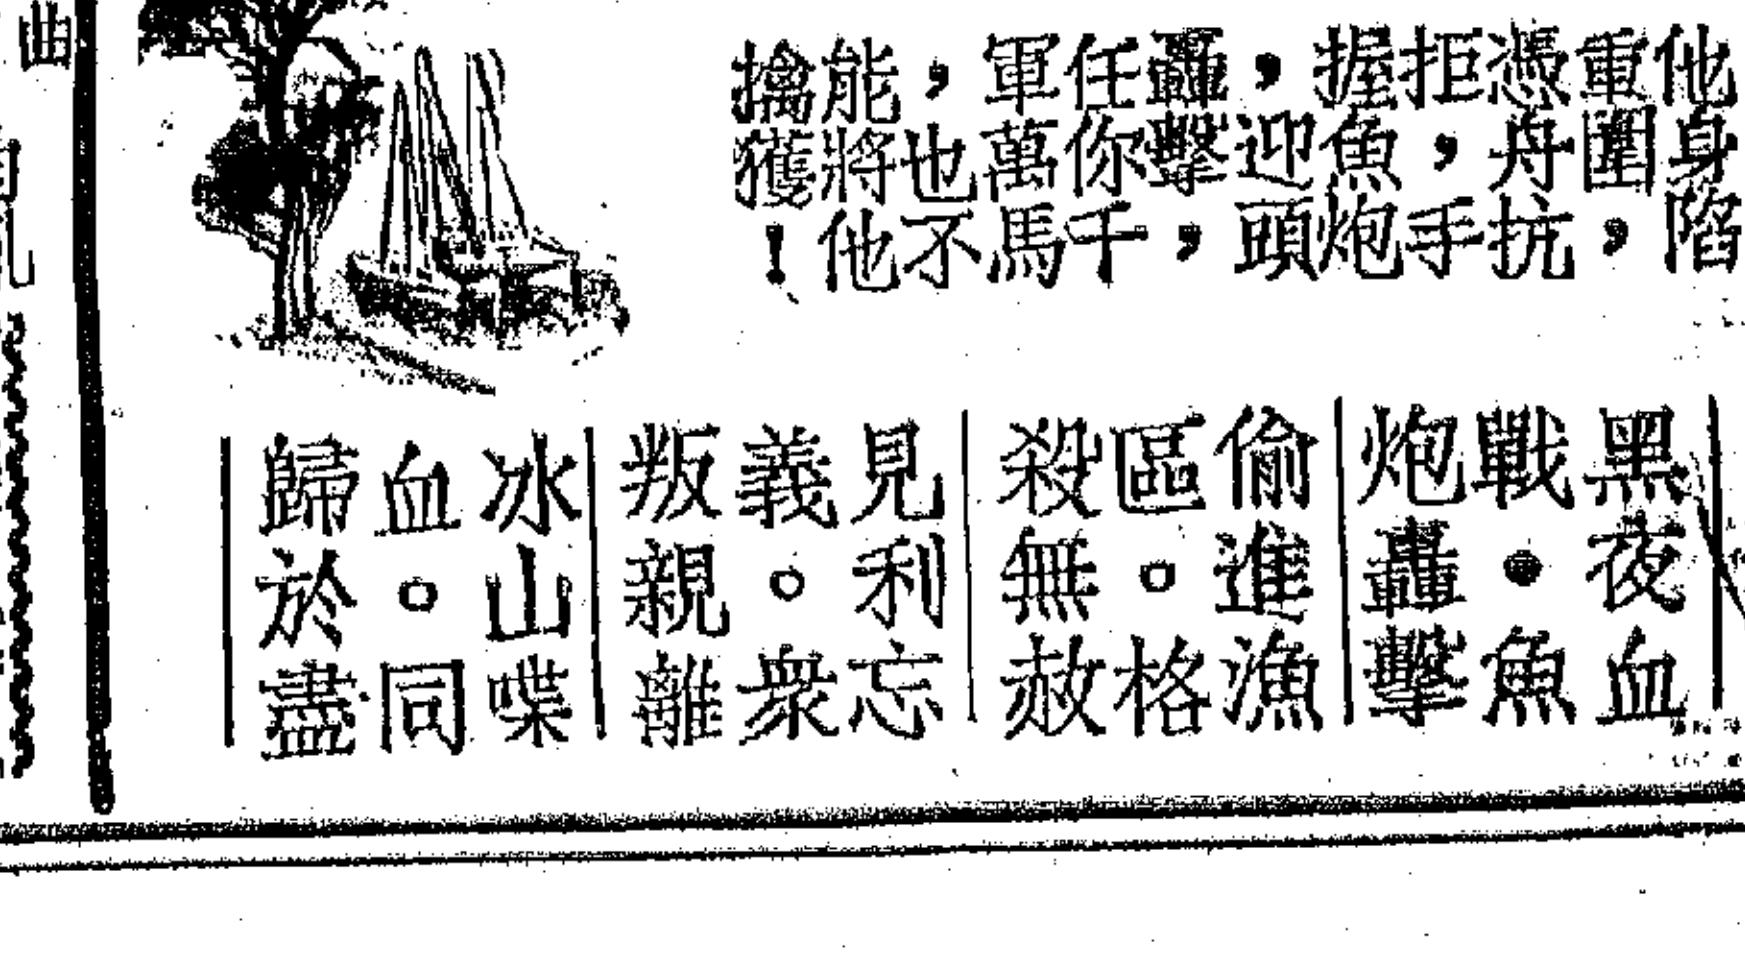 他身陷
重圍，
憑舟抗
拒，手
握魚炮
，迎頭
轟擊，
任你千
軍萬馬
，也不
能將他
擒獲！
黑夜血
戰。魚
炮轟擊
偷進漁
區。格
殺無赦
見利忘
義。衆
叛親離
冰山喋
血。同
歸於盡
曲